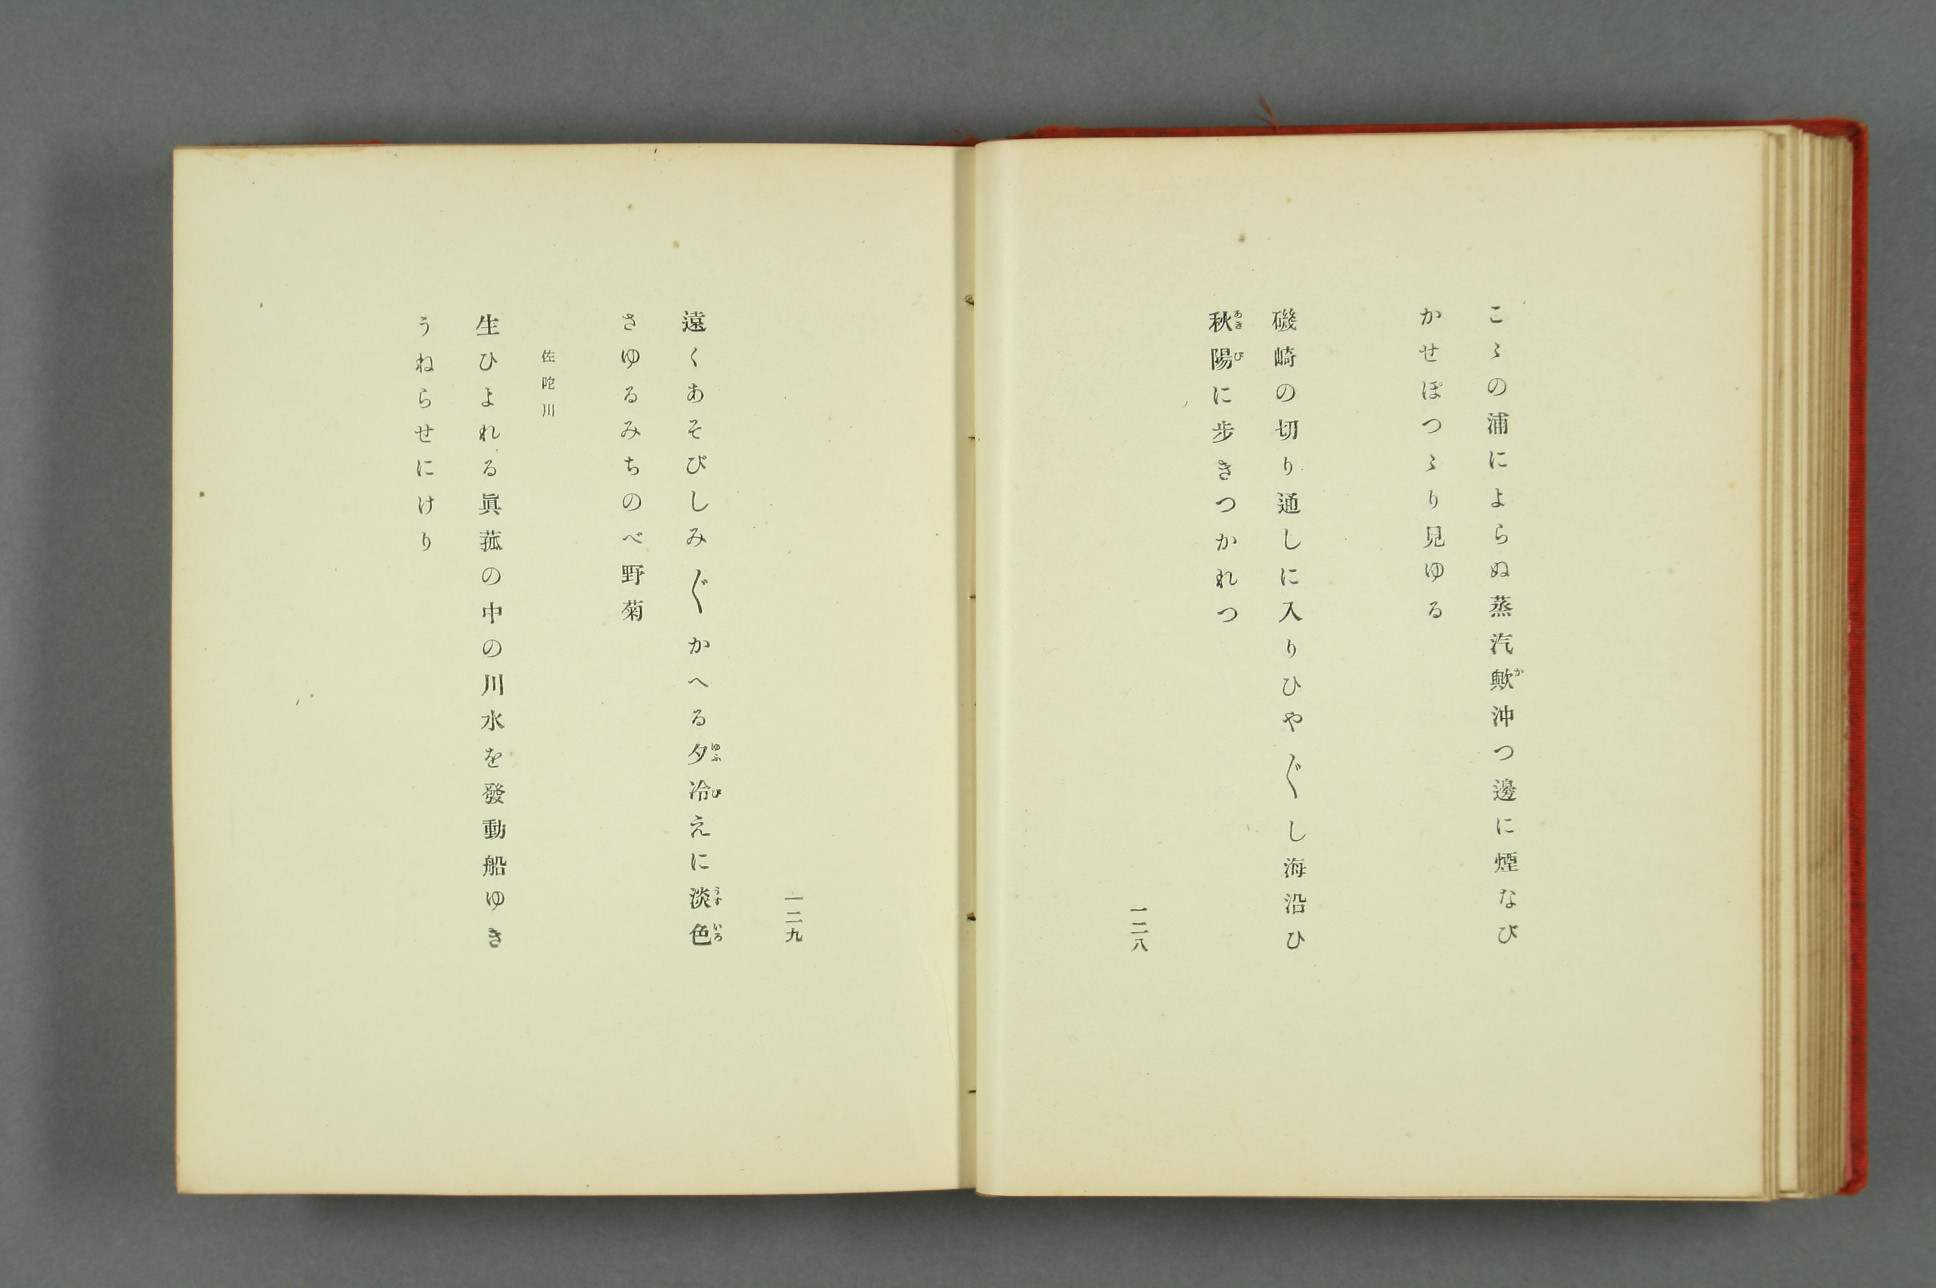 こゝの浦によらぬ蒸汽歟沖つ邊に煙なび
かせぽつゝり見ゆる
磯崎の切り通しに入りひや〴〵し海沿ひ
秋陽に歩きつかれつ
一二八
遠くあそびしみ〴〵かへる夕冷えに淡色
さゆるみちのべ野菊
佐陀川
生ひよれる眞菰の中の川水を發動船ゆき
うねらせにけり
一二九